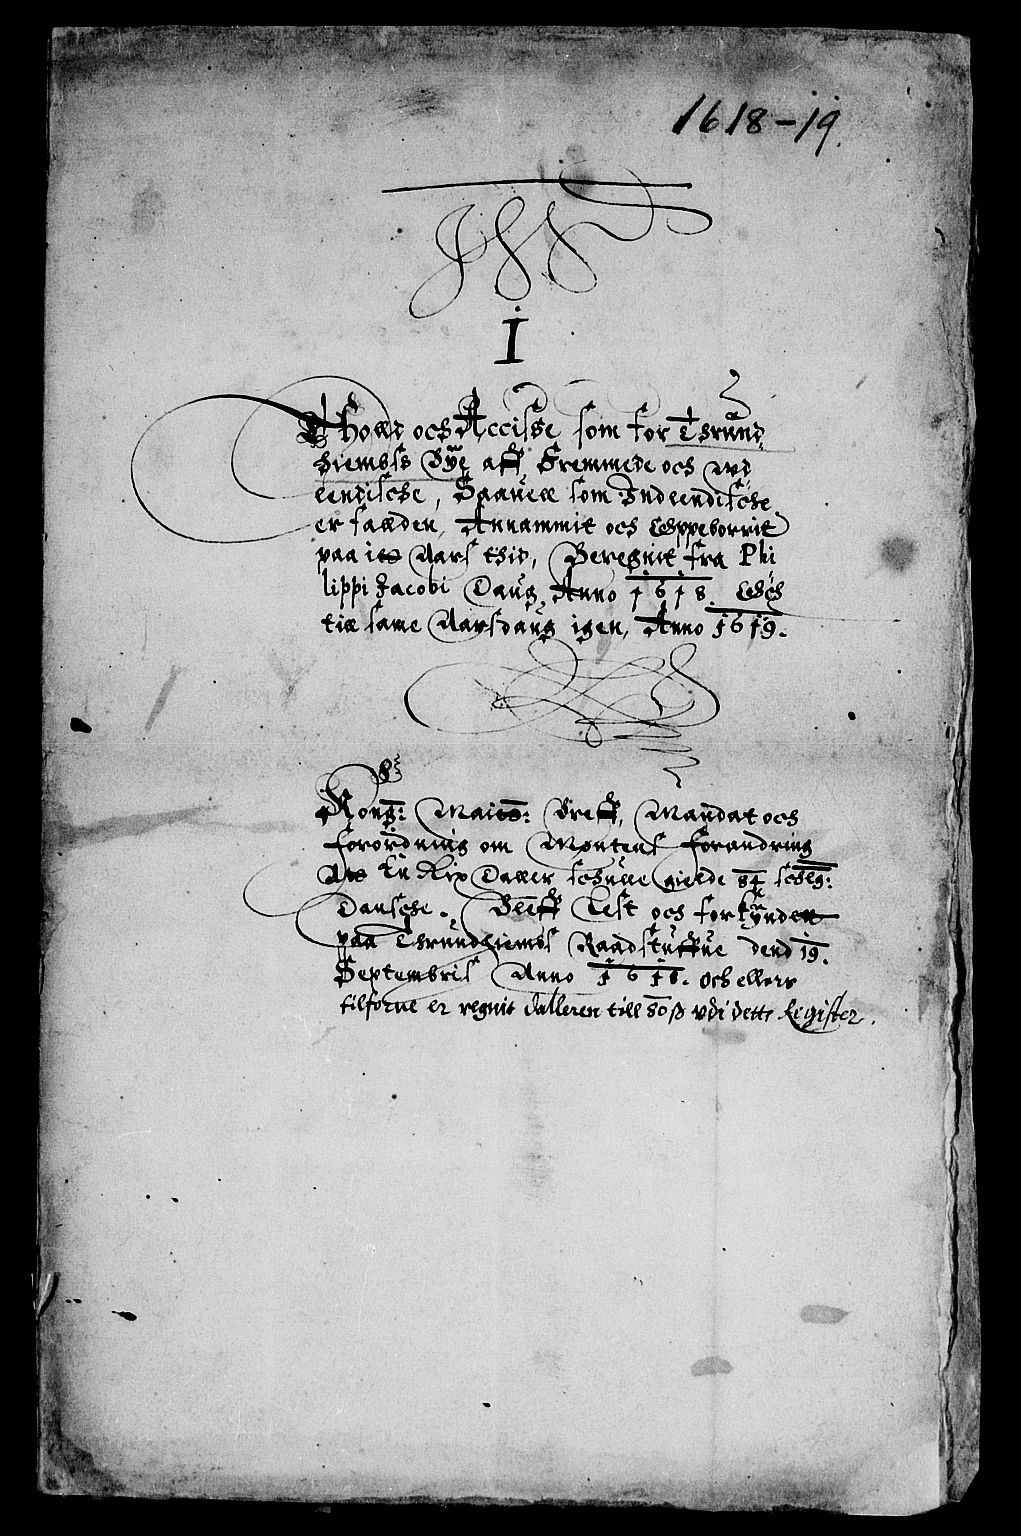 1618-19.
I
Thold och Accisse som for Thrund,
hiembs Bye aff Fremmede och wd
lendische, Saauell som Indlendische
er falden, Annammit och Oppeborrit
paa it Aars thid, Beregnit fra Phi
lippi Jacobi Daug Anno 1618. Och
till same Aarsdaug igen, Anno 1619.
Kong: Maits: Breff, Mandat och
forordning om Møntens forandring
At En Rix Daller schulle gielde 84 schlg:
Dansche. Bleff Lest och forkyndett
paa Thrundhiembs Raadstuffue dend 19.
Septembris Anno 1618. och ellers
tilforne er regnit dalleren till 80 ß udi dette Register.